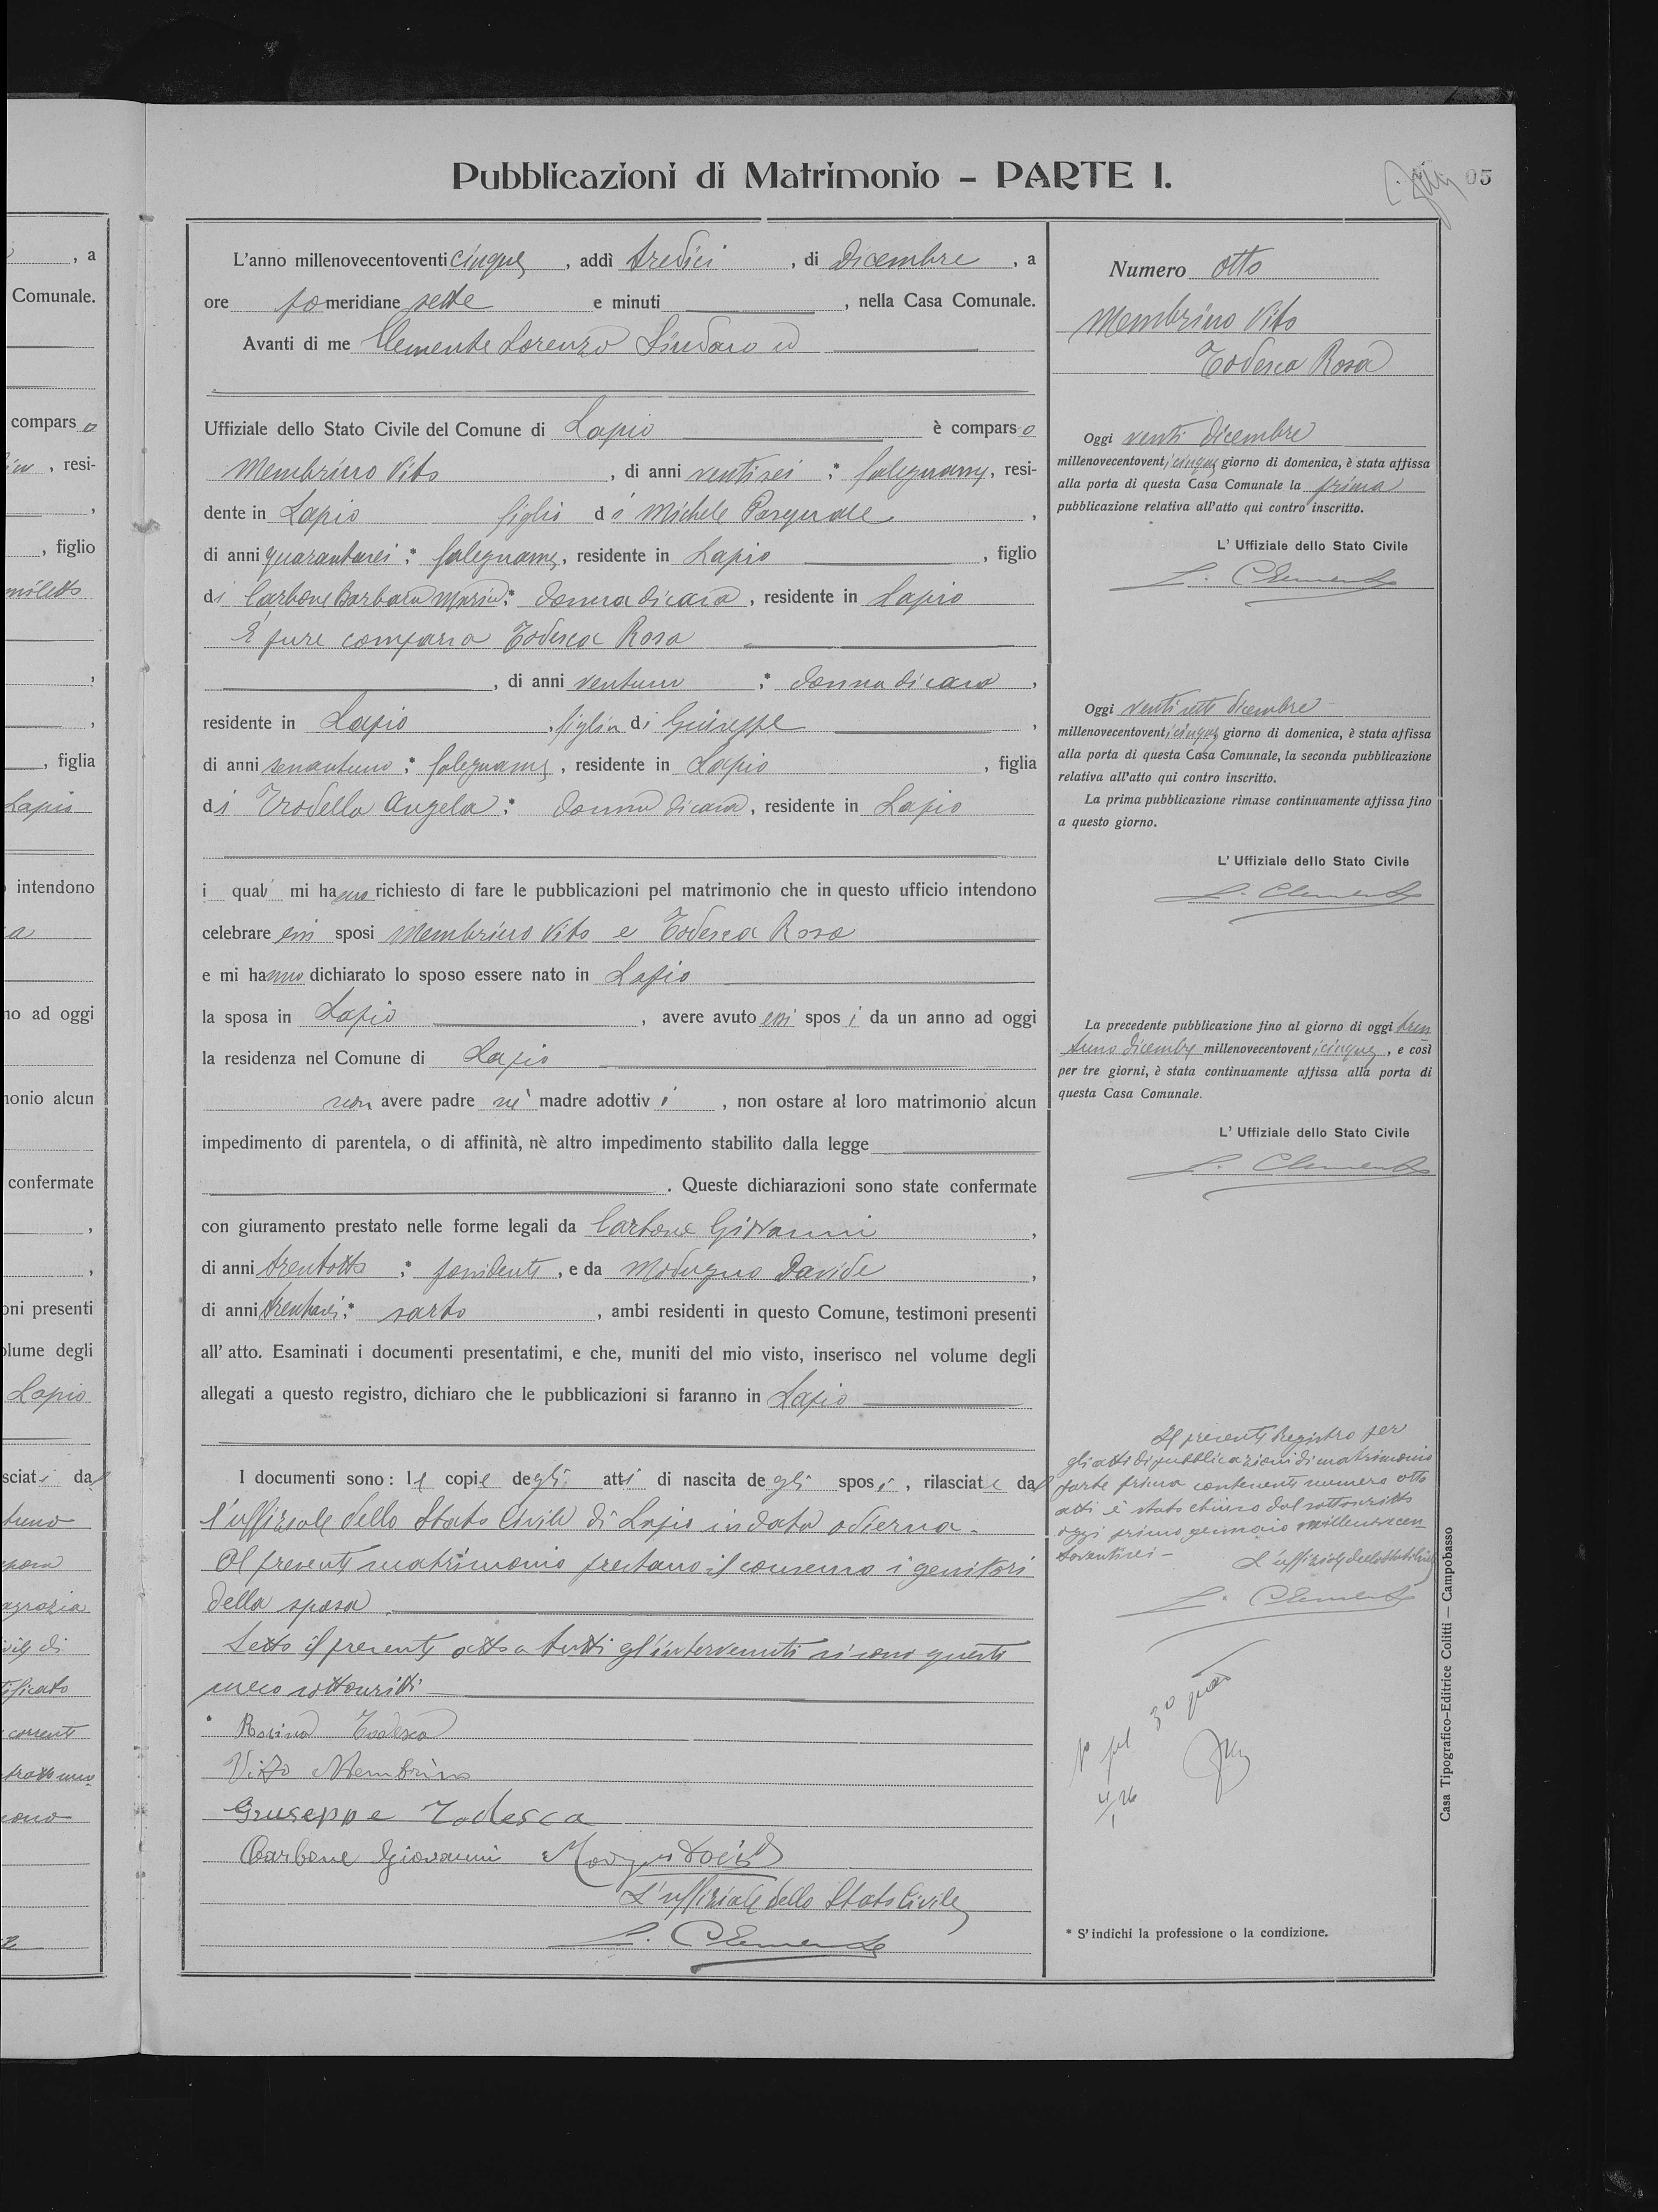 , a
Comunale.
compars o
, resi-
,
, figlio
,
,
, figlia
Lapio
intendono
a
no ad oggi
monio alcun
confermate
,
,
oni presenti
olume degli
Lapio
sciat i da
tuno
ivile di
tificato
corrente
Pubblicazioni di Matrimonio – PARTE I.
05
L'anno millenovecentoventicinque, addì tredici, di dicembre, a
ore pomeridiane sette e minuti , nella Casa Comunale.
Avanti di me Clemente Lorenzo Sindaco ed
Uffiziale dello Stato Civile del Comune di Lapio è comparso
Membrino Vito, di anni ventisei :* falegname, resi-
dente in Lapio figlio di Michele Pasquale,
di anni quarantasei :* falegname, residente in Lapio, figlio
di Carbone Barbara Maria :* donna di casa, residente in Lapio
È pure comparsa Todesca Rosa
, di anni ventuno :* donna di casa,
residente in Lapio, figlia di Giuseppe,
di anni sessantuno :* falegname, residente in Lapio, figlia
di Trodella Angela :* donna di casa, residente in Lapio
i quali mi hanno richiesto di fare le pubblicazioni pel matrimonio che in questo ufficio intendono
celebrare essi sposi Membrino Vito e Todesca Rosa
e mi hanno dichiarato lo sposo essere nato in Lapio
la sposa in Lapio, avere avuto essi sposi da un anno ad oggi
la residenza nel Comune di Lapio
non avere padre nè madre adottivi, non ostare al loro matrimonio alcun
impedimento di parentela, o di affinità, nè altro impedimento stabilito dalla legge
. Queste dichiarazioni sono state confermate
con giuramento prestato nelle forme legali da Carbone Giovanni,
di anni trentotto :* possidente, e da Modugno Davide,
di anni trentasei :* sarto, ambi residenti in questo Comune, testimoni presenti
all'atto. Esaminati i documenti presentatimi, e che, muniti del mio visto, inserisco nel volume degli
allegati a questo registro, dichiaro che le pubblicazioni si faranno in Lapio
I documenti sono: le copie degli atti di nascita degli sposi, rilasciate dal
l'uffiziale dello Stato Civile di Lapio in data odierna.
Al presente matrimonio prestano il consenso i genitori
della sposa.
Letto il presente atto a tutti gl'intervenuti si sono questi
meco sottoscritti
Rosina Todesca
Vito Membrino
Giuseppe Todesca
Carbone Giovanni
L'uffiziale dello Stato Civile
L. Clemente
Numero otto
Membrino Vito
Todesca Rosa
Oggi venti dicembre
millenovecentoventicinque giorno di domenica, è stata affissa
alla porta di questa Casa Comunale la prima
pubblicazione relativa all'atto qui contro inscritto.
L'Uffiziale dello Stato Civile
L. Clemente
Oggi ventisette dicembre
millenovecentoventicinque giorno di domenica, è stata affissa
alla porta di questa Casa Comunale, la seconda pubblicazione
relativa all'atto qui contro inscritto.
La prima pubblicazione rimase continuamente affissa fino
a questo giorno.
L'Uffiziale dello Stato Civile
L. Clemente
La precedente pubblicazione fino al giorno di oggi tren
tuno dicembre millenovecentoventicinque, e così
per tre giorni, è stata continuamente affissa alla porta di
questa Casa Comunale.
L'Uffiziale dello Stato Civile
L. Clemente
Il presente Registro per
gli atti di pubblicazioni di matrimonio
parte prima contenente numero otto
atti è stato chiuso dal sottoscritto
oggi primo gennaio millenovecen-
toventisei – L'uffiziale dello Stato Civile
L. Clemente
* S'indichi la professione o la condizione.
Casa Tipografico-Editrice Colitti — Campobasso